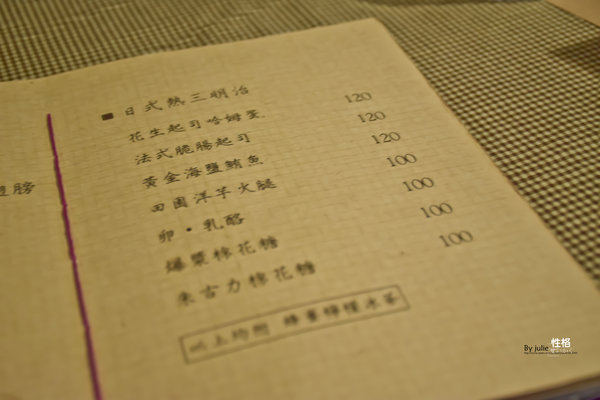 翅膀
■日式熱三明治
花生起司哈姆蛋 120
法式脆腸起司 120
黃金海鹽鮪魚 120
田園洋芋火腿 100
卵・乳酪 100
爆漿棉花糖 100
朱古力棉花糖 100
以上均附 蜂蜜檸檬冰茶
By julie 性格